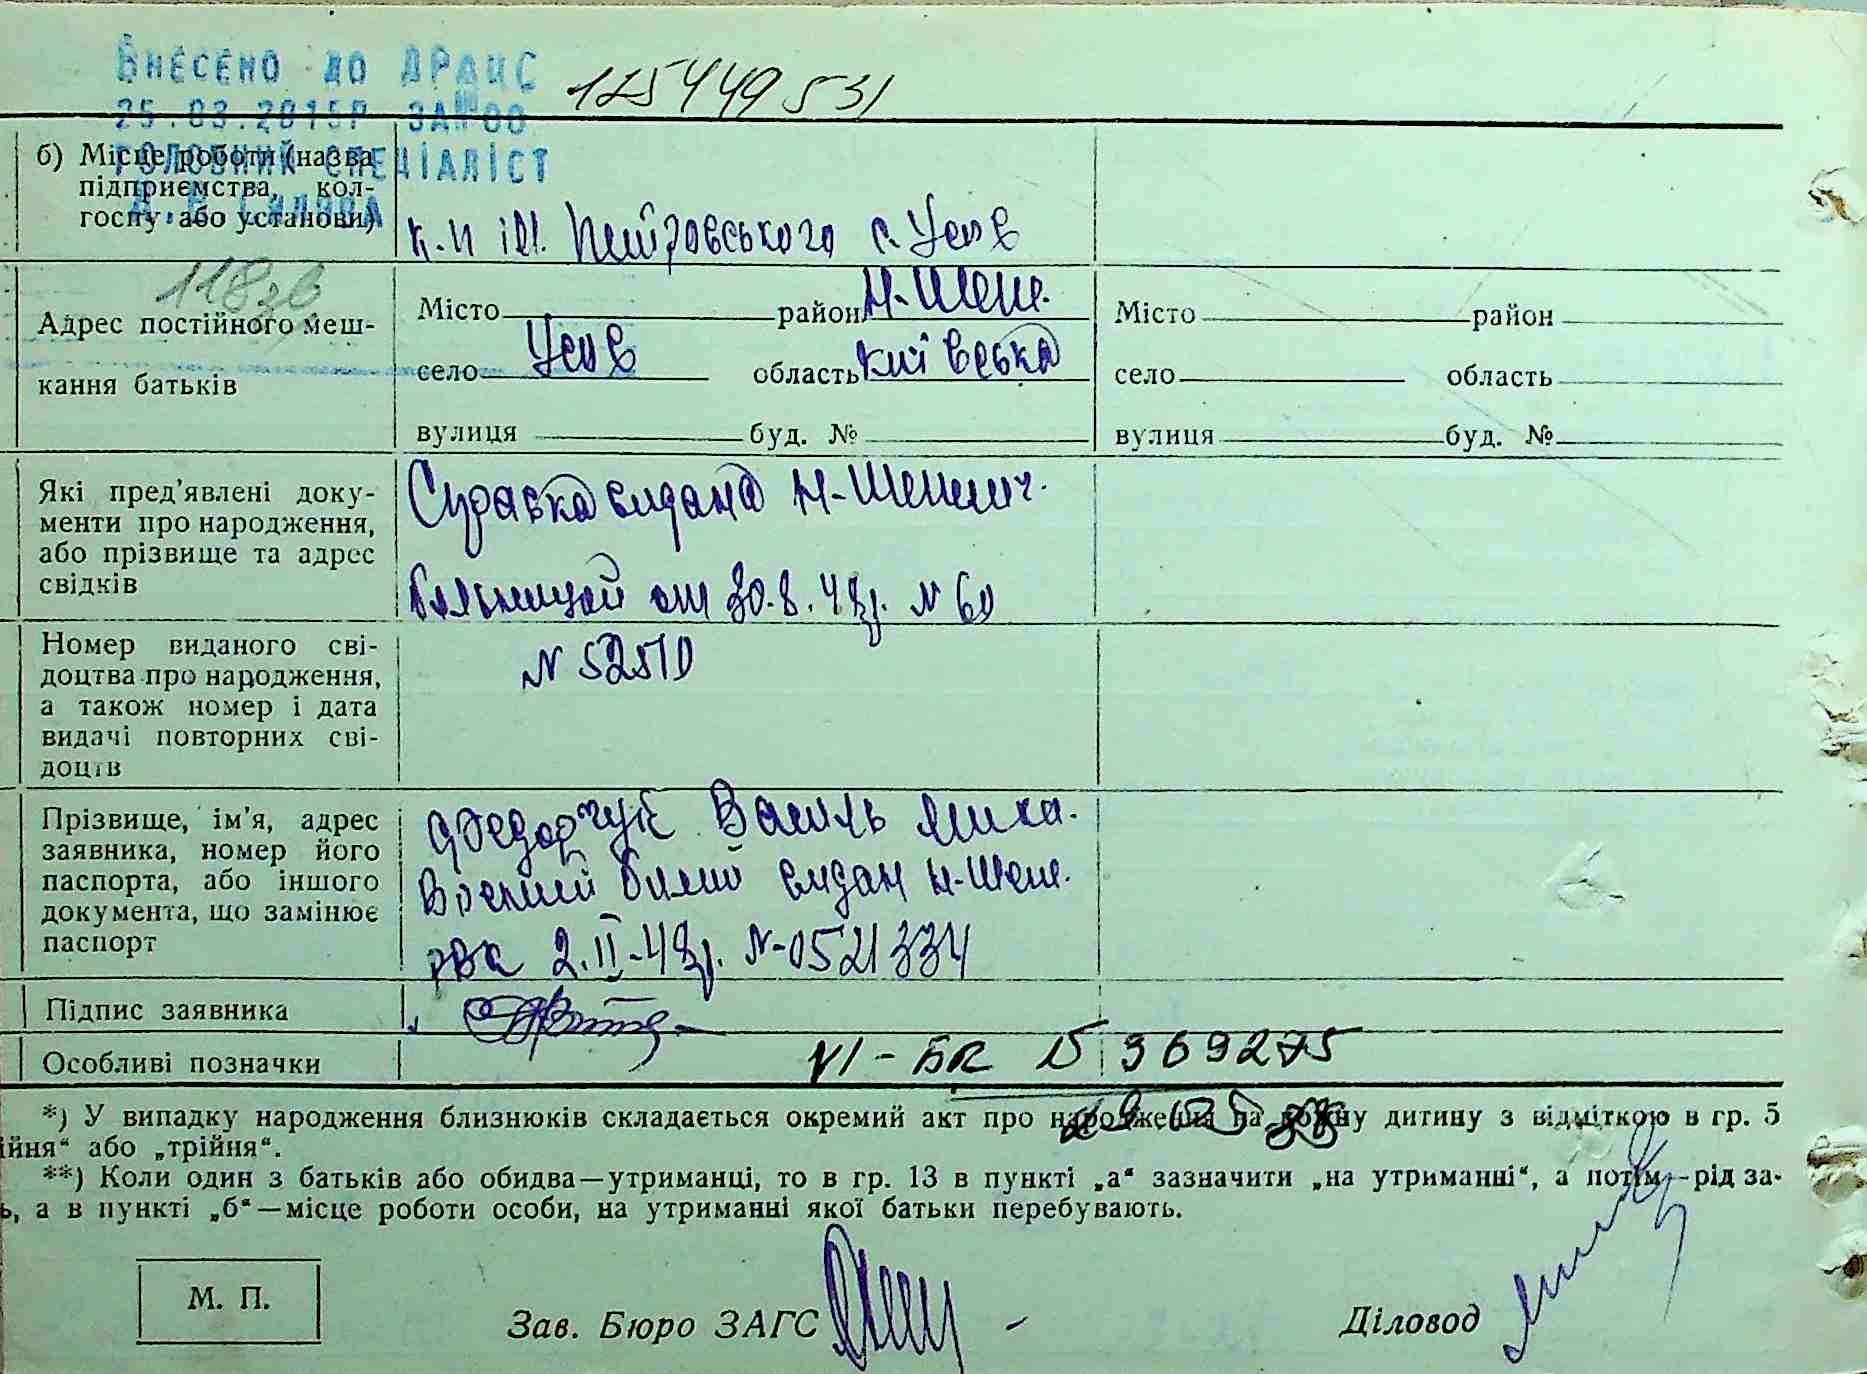 ВНЕСЕНО ДО ДРАЦС
125449531
25.03.2015Р ЗА№00
ГОЛОВНИЙ СПЕЦІАЛІСТ
б) Місце роботи (назва
підприємства, кол-
госпу або установи)
к-п ім. Петровського с. Усів
118зв
Адрес постійного меш-
кання батьків
Місто район Н-Шеп.
село Усів область Київська
вулиця буд. №
Місто район
село область
вулиця буд. №
Які пред'явлені доку-
менти про народження,
або прізвище та адрес
свідків
Справка видана Н-Шепелич.
больницой от 30.8.48р. N 60
Номер виданого сві-
доцтва про народження,
а також номер і дата
видачі повторних сві-
доцтв
N 52510
Прізвище, ім'я, адрес
заявника, номер його
паспорта, або іншого
документа, що замінює
паспорт
Федорчук Василь Миха.
Воєний билий видан Н-Шеп.
рвк 2.II-48р. N-0521334
Підпис заявника
Особливі позначки
VI-БК 15 369275
*) У випадку народження близнюків складається окремий акт про народження на кожну дитину з відміткою в гр. 5
ійня“ або „трійня“.
**) Коли один з батьків або обидва—утриманці, то в гр. 13 в пункті „а“ зазначити „на утриманні“, а потім—рід за-
ь, а в пункті „б“—місце роботи особи, на утриманні якої батьки перебувають.
М. П.
Зав. Бюро ЗАГС
Діловод